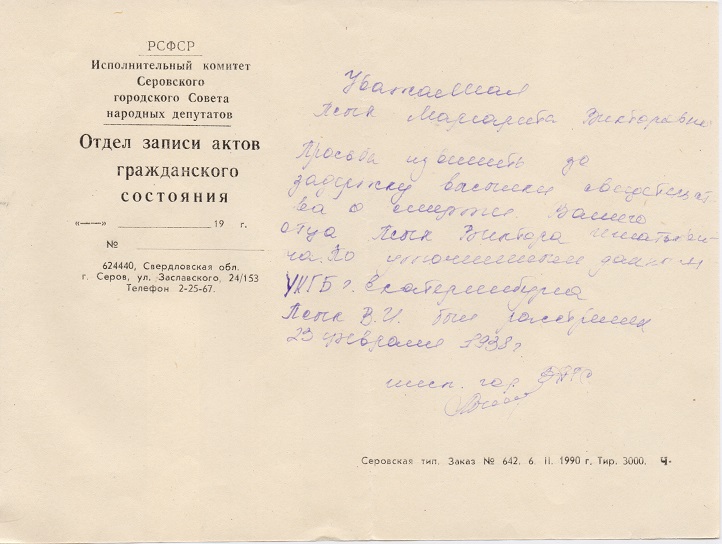 РСФСР
Исполнительный комитет
Серовского
городского Совета
народных депутатов
Отдел записи актов
гражданского
состояния
«——» ____________ 19 г.
№ ____________
624440, Свердловская обл.
г. Серов, ул. Заславского, 24/153
Телефон 2-25-67.
Уважаемая
Псык Маргарита Викторовна
Просьба извинить за
задержку высылки свидетельст
ва о смерти Вашего
отца Псык Виктора Игнатьеви
ча. По уточненным данным
УКГБ г. Екатеринбурга
Псык В.И. был расстрелян
23 февраля 1938 г
инсп. гор.
Серовская тип. Заказ № 642. 6. II. 1990 г. Тир. 3000. Ч-